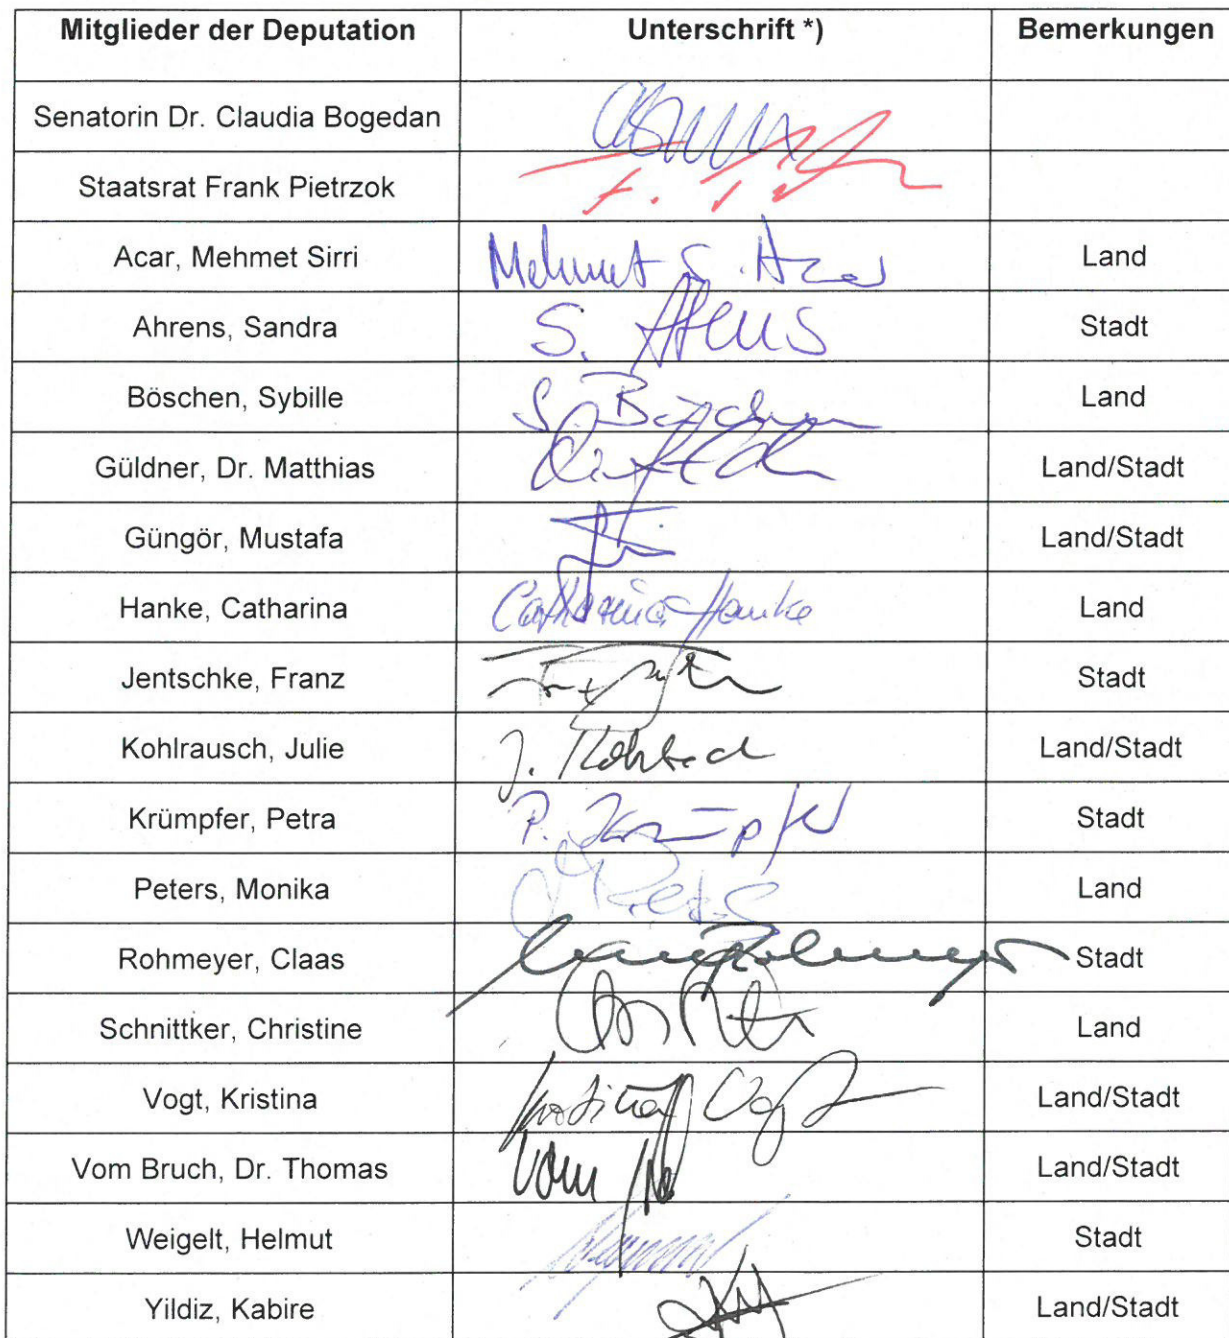 Mitglieder der Deputation Unterschrift *) Bemerkungen
Senatorin Dr. Claudia Bogedan
Staatsrat Frank Pietrzok
Acar, Mehmet Sirri Mehmet S. Acar Land
Ahrens, Sandra S. Ahrens Stadt
Böschen, Sybille S. Böschen Land
Güldner, Dr. Matthias Land/Stadt
Güngör, Mustafa Land/Stadt
Hanke, Catharina Catharina Hanke Land
Jentschke, Franz Stadt
Kohlrausch, Julie J. Land/Stadt
Krümpfer, Petra P. Krümpfer Stadt
Peters, Monika Peters Land
Rohmeyer, Claas Claas Rohmeyer Stadt
Schnittker, Christine Land
Vogt, Kristina Kristina Vogt Land/Stadt
Vom Bruch, Dr. Thomas vom Land/Stadt
Weigelt, Helmut Stadt
Yildiz, Kabire Land/Stadt